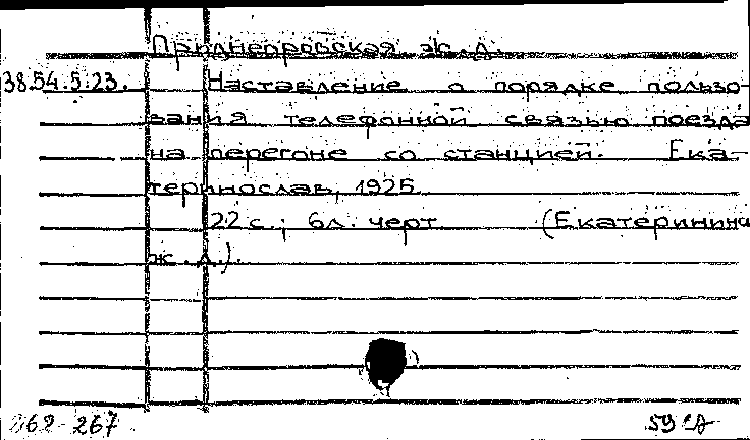 Приднепровская ж.д.
38.54.5.23. Наставление о порядке пользо-
вания телефонной связью поезда
на перегоне со станцией. Ека-
теринослав, 1925
22 с.; 6л. черт (Екатеринин
ж.д.).
267
59